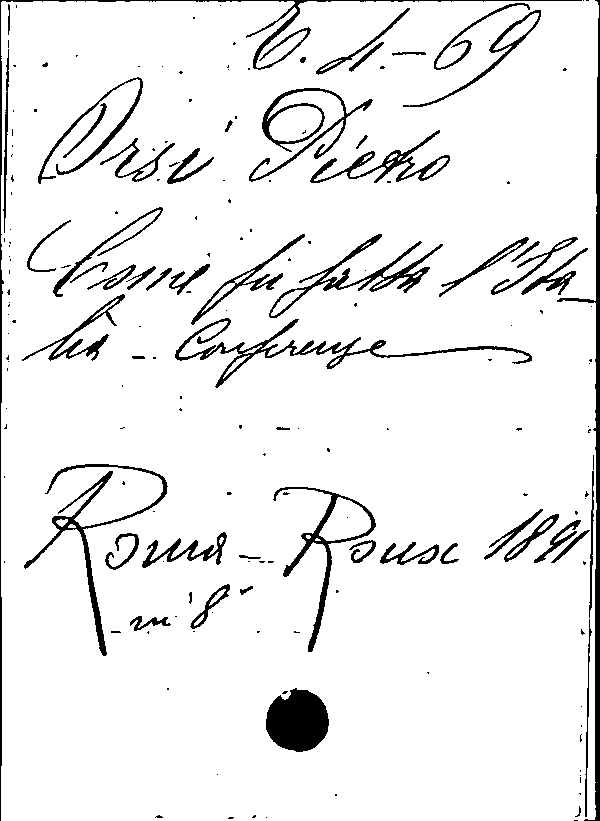 E. 4. - 69
Orsi Pietro
Come fu fatta l'Ita_
lia - Conferenze
Roma - Roux 1891
in 8°